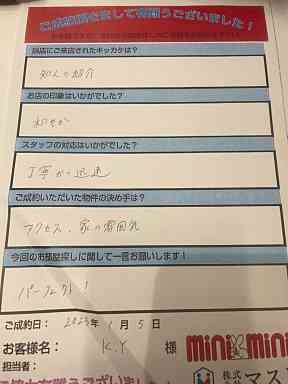 ご成約誠にまして有難うございました！
当店にご来店されたキッカケは？
知人の紹介
お店の印象はいかがでしたか？
和やか
スタッフの対応はいかがでしたか？
丁寧かつ迅速
ご成約いただいた物件の決め手は？
アクセス、家の雰囲気
今回のお部屋探しに関して一言お願いします！
パーフェクト！
ご成約日： 2023年 1月 5日
お客様名： K.Y 様 mini mini
担当者： 株式 マス